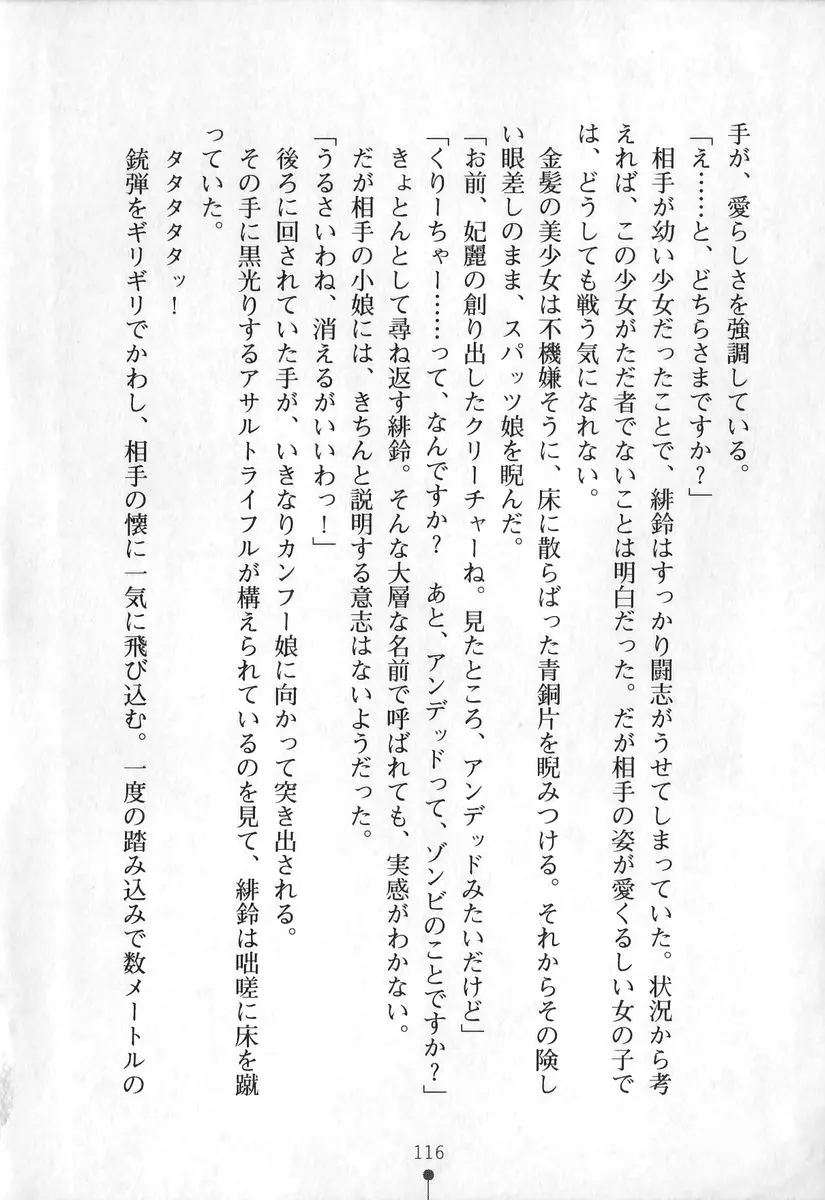 手が、愛らしさを強調している。
「え……と、どちらさまですか？」
相手が幼い少女だったことで、緋鈴はすっかり闘志がうせてしまっていた。状況から考
えれば、この少女がただ者でないことは明白だった。だが相手の姿が愛くるしい女の子で
は、どうしても戦う気になれない。
金髪の美少女は不機嫌そうに、床に散らばった青銅片を睨みつける。それからその険し
い眼差しのまま、スパッツ娘を睨んだ。
「お前、妃麗の創り出したクリーチャーね。見たところ、アンデッドみたいだけど」
「くりーちゃー……って、なんですか？　あと、アンデッドって、ゾンビのことですか？」
きょとんとして尋ね返す緋鈴。そんな大層な名前で呼ばれても、実感がわかない。
だが相手の小娘には、きちんと説明する意志はないようだった。
「うるさいわね、消えるがいいわっ！」
後ろに回されていた手が、いきなりカンフー娘に向かって突き出される。
その手に黒光りするアサルトライフルが構えられているのを見て、緋鈴は咄嗟に床を蹴
っていた。
タタタタタッ！
銃弾をギリギリでかわし、相手の懐に一気に飛び込む。一度の踏み込みで数メートルの
116